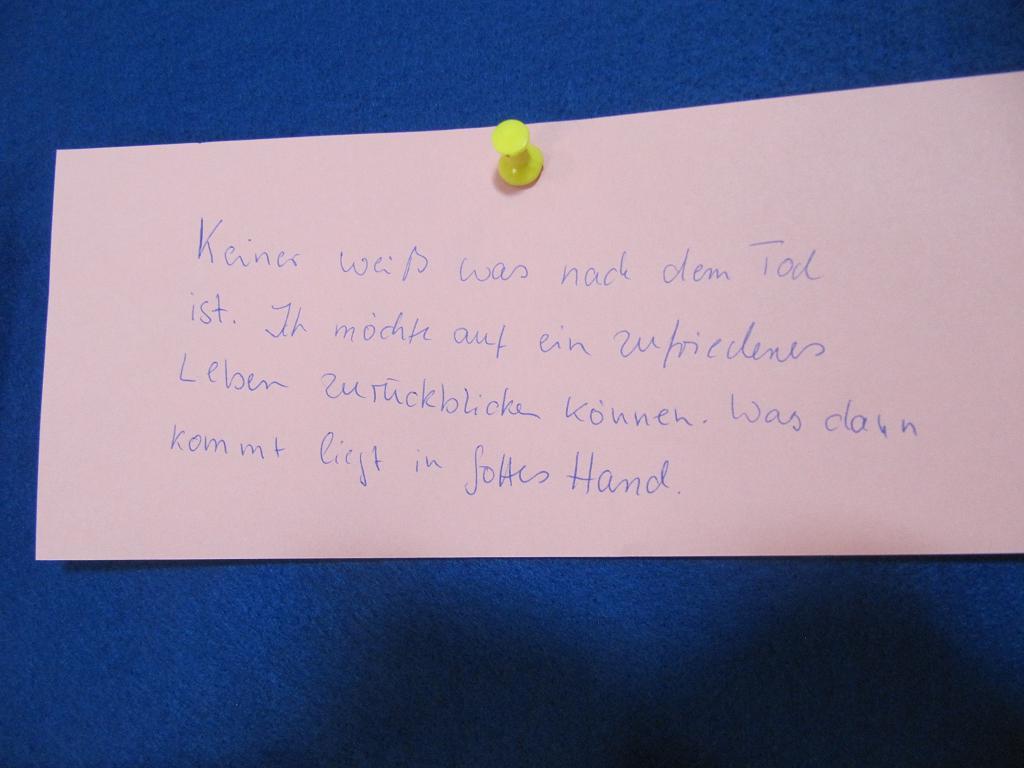 Keiner weiß was nach dem Tod
ist. Ich möchte auf ein zufriedenes
Leben zurückblicken können. Was dann
kommt liegt in Gottes Hand.